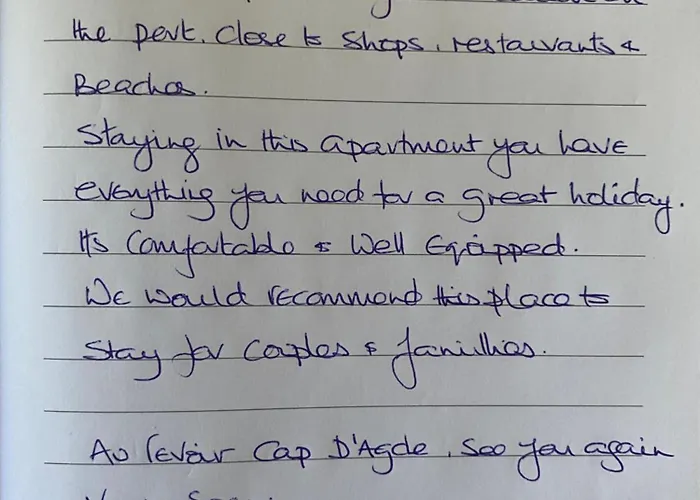 the port. Close to Shops, restaurants &
Beaches.
Staying in this apartment you have
everything you need for a great holiday.
Its Comfortable & Well Equipped.
We would recommend this place to
Stay for Couples & families.
Au revoir Cap D'Agde, See you again